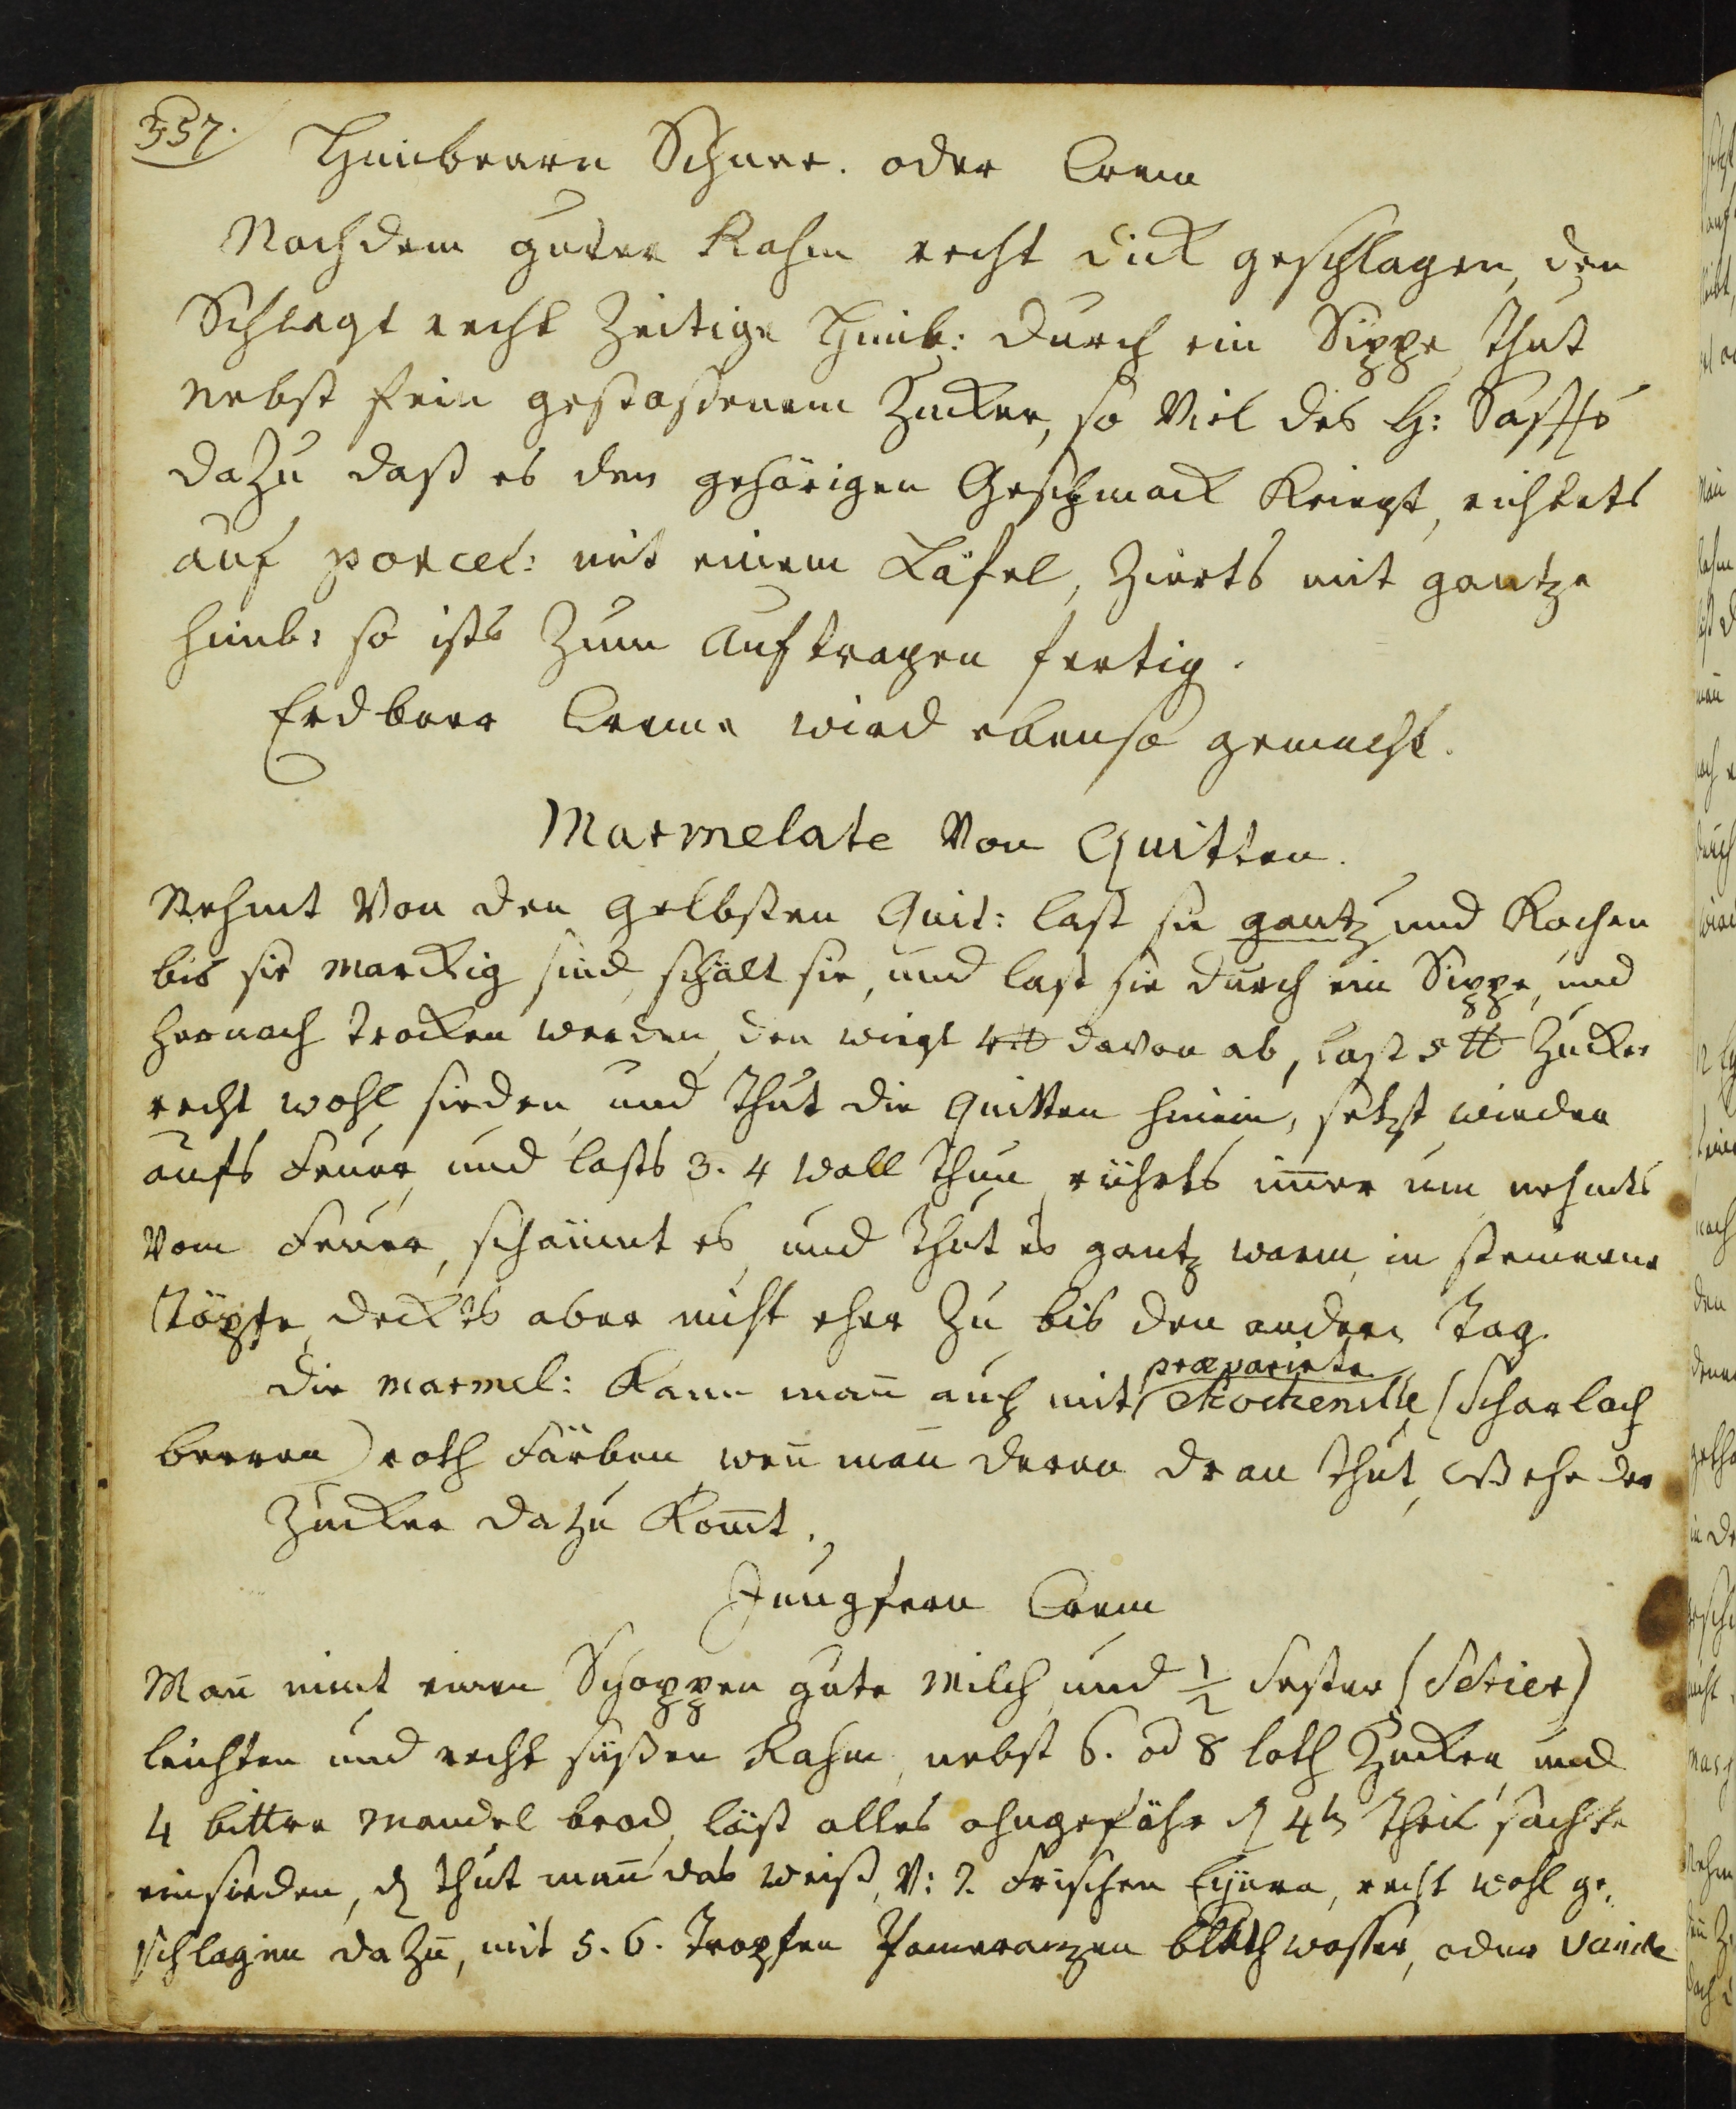 357.
Himbeern Schnee. oder Crem
Nachdem guter Rahm recht dick geschlagen, den
Schlagt recht Zeitige Himb: durch ein Sippe, thut
nebst fein gestossenem Zucker, so viel des H: Saffts
dazu daß es den gehörigen Geschmack Kriegt, richtets
auf porcel: mit einem Läfel, Zierts mit gantze
himb: so ists Zum Auftragen fertig.
Erdbeer Creme wird ebenso gemacht.
Marmelate Von Quitten.
Nehmt Von den gelbsten Quit: last sie gantz und Kochen
bis sie marckig sind, schält sie, und last sie durch ein Sippe, und
hernach trocken werden, den wiegt 4 ℔ davon ab, last 5 ℔ Zucker
recht wohl sieden, und thut die Quitten hinein, setzt wieder
aufs Feuer, und lasts 3. 4 Wall thun, rührts im̄er um, nehmts
vom Feuer, schäumt es, und thut es gantz warm, in steinerne
Töpfe, deckts aber nicht eher zu bis den andern Tag.
præparirte
Die marmel: Kann man̄ auch mit Kockenille (Scharlach
beeren) roth Färben, wen̄ man̄ deren dran thut, ehe der
Zucker dazu Kom̄t.
Jungfern Crem
Man̄ nimt einen Schoppen gute Milch, und ½ Sester (Setier)
leichten und recht süßen Rahm, nebst 6. od 8 loth Zucker, und
4 bittre Mandel brod, läst alles ohngefähr d 4te Theil sachte
einsieden, d thut man̄ das Weiß, V: 7. Frischen Eyern, recht wohl ge,
schlagen dazu, mit 5. 6. Tropfen Pomeranzen Blüthwasser, oder